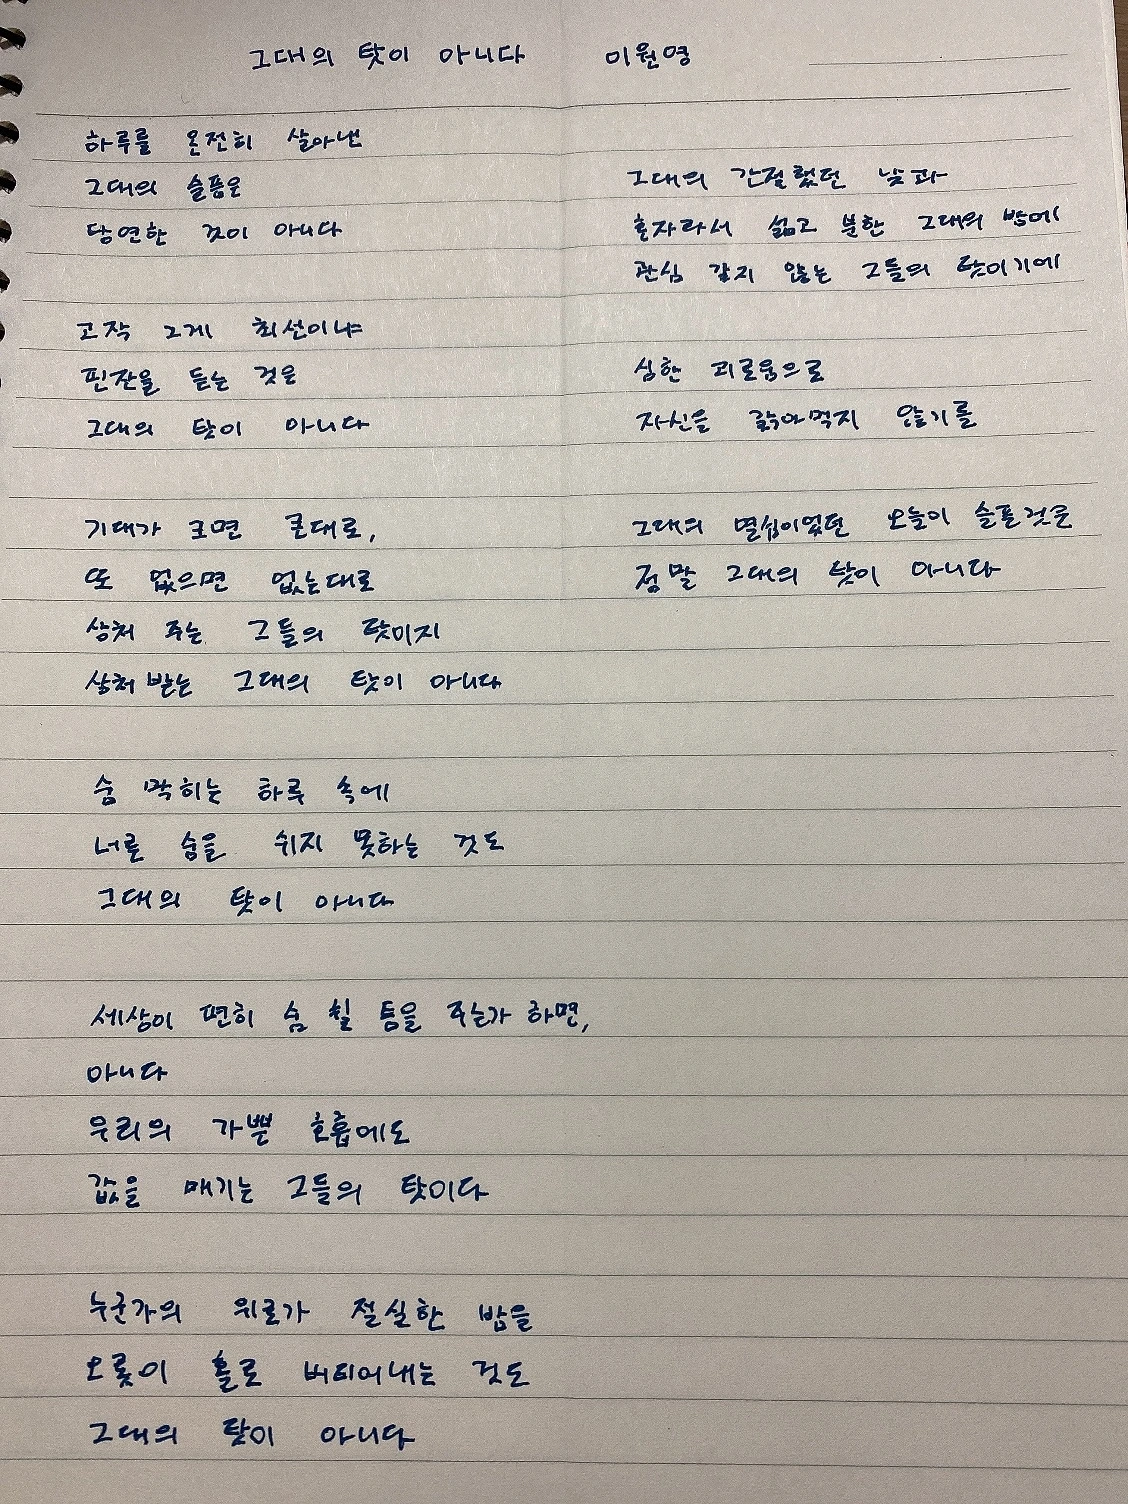 그대의 탓이 아니다 이원영
하루를 온전히 살아낸
그대의 슬픔은
당연한 것이 아니다
고작 그게 최선이냐
핀잔을 듣는 것은
그대의 탓이 아니다
기대가 크면 큰대로,
또 없으면 없는대로
상처 주는 그들의 탓이지
상처 받는 그대의 탓이 아니다
숨 막히는 하루 속에
너른 숨을 쉬지 못하는 것도
그대의 탓이 아니다
세상이 편히 숨 쉴 틈을 주는가 하면,
아니다
우리의 가쁜 호흡에도
값을 매기는 그들의 탓이다
누군가의 위로가 절실한 밤을
오롯이 홀로 버티어내는 것도
그대의 탓이 아니다
그대의 간절했던 낮과
혼자라서 섧고 분한 그대의 밤에
관심 갖지 않는 그들의 탓이기에
심한 괴로움으로
자신을 긁아먹지 않기를
그대의 열심이었던 오늘이 슬픈것은
정말 그대의 탓이 아니다